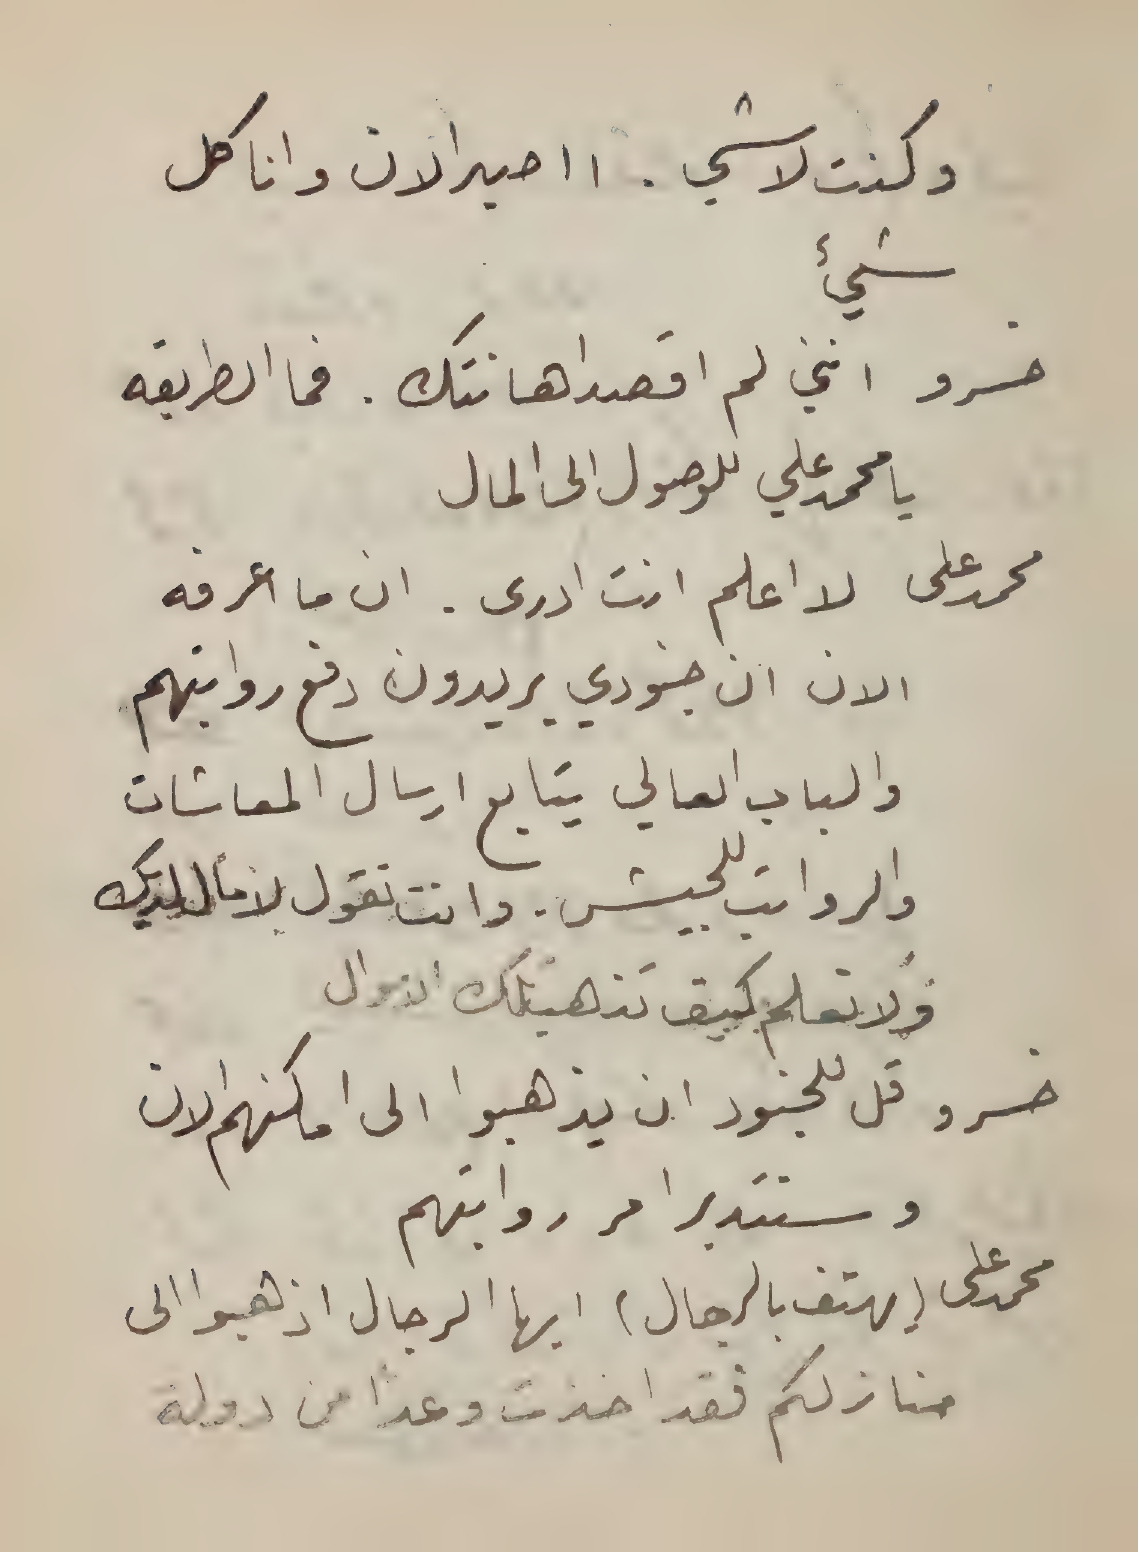 وكنت لا شي . ااصير الان وانا كل
شيئ
خسرو انني لم اقصد اهانتك . فما الطريقه
يا محمد علي للوصول الى المال
محمد على لا اعلم انت ادرى . ان ما اعرفه
الان ان جنودي يريدون دفع رواتبهم
والباب العالي يتابع ارسال المعاشات
والرواتب للجيش . وانت تقول لا مال لديك
ولا تعلم كيف تذهب تلك الاموال
خسرو قل للجنود ان يذهبوا الى اماكنهم الان
وسنتدبر امر رواتبهم
محمد على (يهتف بالرجال) ايها الرجال اذهبوا الى
منازلكم فقد اخذت وعدا من دولة